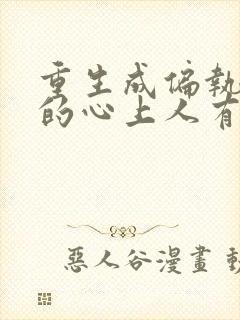 重生成偏執
的心上人有
惡人谷漫畫